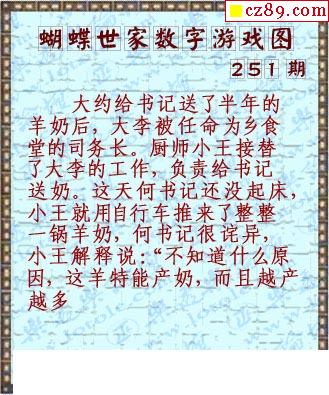 cz89.com
蝴蝶世家数字游戏图
251期
大约给书记送了半年的
羊奶后，大李被任命为乡食
堂的司务长。厨师小王接替
了大李的工作，负责给书记
送奶。这天何书记还没起床，
小王就用自行车推来了整整
一锅羊奶，何书记很诧异，
小王解释说：“不知道什么原
因，这羊特能产奶，而且越产
越多